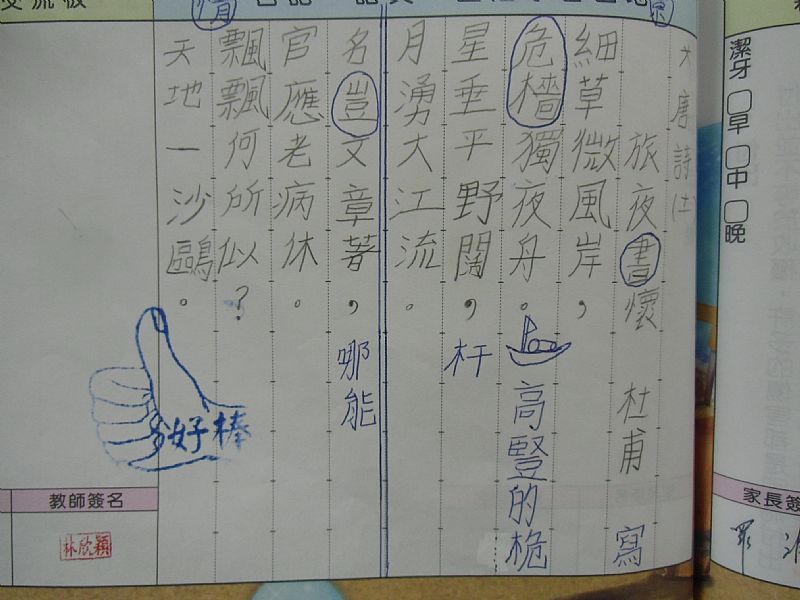 大唐詩(土)
旅夜書懷 杜甫 寫
細草微風岸，
危檣獨夜舟。 高豎的桅
杆
星垂平野闊，
月湧大江流。
名豈文章著， 哪能
官應老病休。
飄飄何所似？
天地一沙鷗。
好棒
教師簽名
林欣穎
潔牙 □早 □中 □晚
家長簽